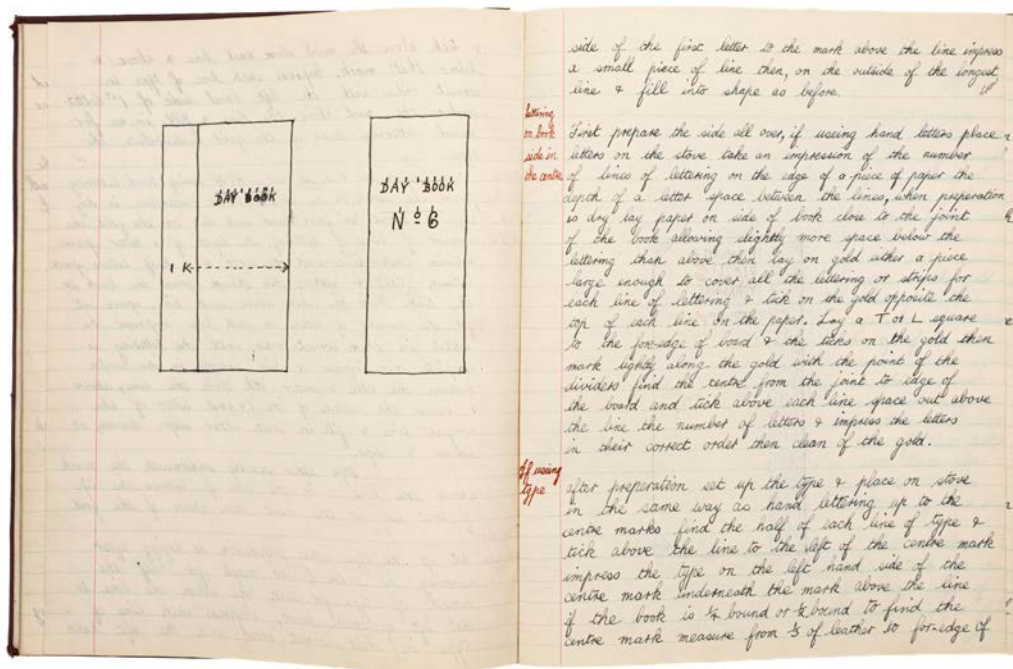 DAY BOOK
1
DAY BOOK
No 6
side of the first letter to the mark above the line impress
a small piece of line then, on the outside of the longest
line & fill into shape as before.
lettering
on book
side in
the centre
First prepare the side all over, if useing hand letters place
letters on the stove take an impression of the number
of lines of lettering on the edge of a piece of paper the
depth of a letter space between the lines, when preperation
is dry lay paper on side of book close to the joint
of the book allowing slightly more space below the
lettering than above then lay on gold either a piece
large enough to cover all the lettering or strips for
each line of lettering & tick on the gold opposite the
top of each line on the paper. Lay a T or L square
to the for-edge of board & the ticks on the gold then
mark lightly along the gold with the point of the
dividers find the centre from the joint to edge of
the board and tick above each line space out above
the line the number of letters & impress the letters
in their correct order then clean of the gold.
If useing
type
after preperation set up the type & place on stove
in the same way as hand lettering up to the
centre marks find the half of each line of type &
tick above the line to the left of the centre mark
impress the type on the left hand side of the
centre mark underneath the mark above the line
if the book is ¼ bound or ½ bound to find the
centre mark measure from ⅓ of leather to for-edge of